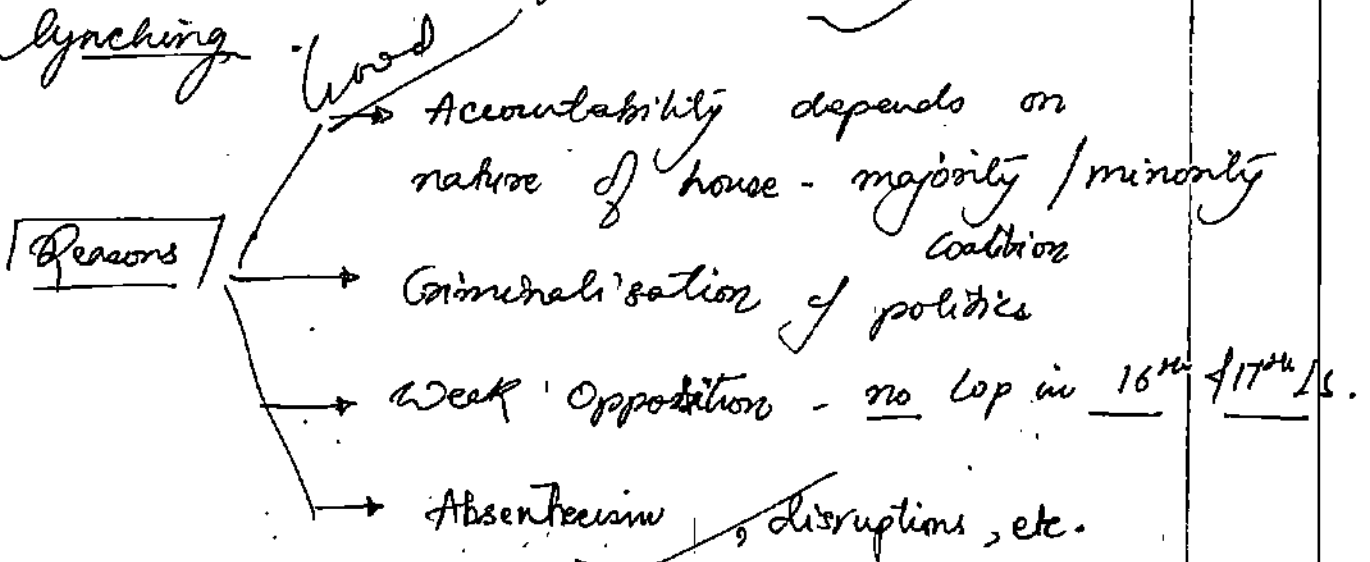 lynching
Good
→ Accountability depends on
nature of house - majority / minority
coalition
Reasons
→ Criminalisation of politics
→ Week Opposition - no Lop in 16th & 17th LS.
→ Absenteeism, disruptions, etc.